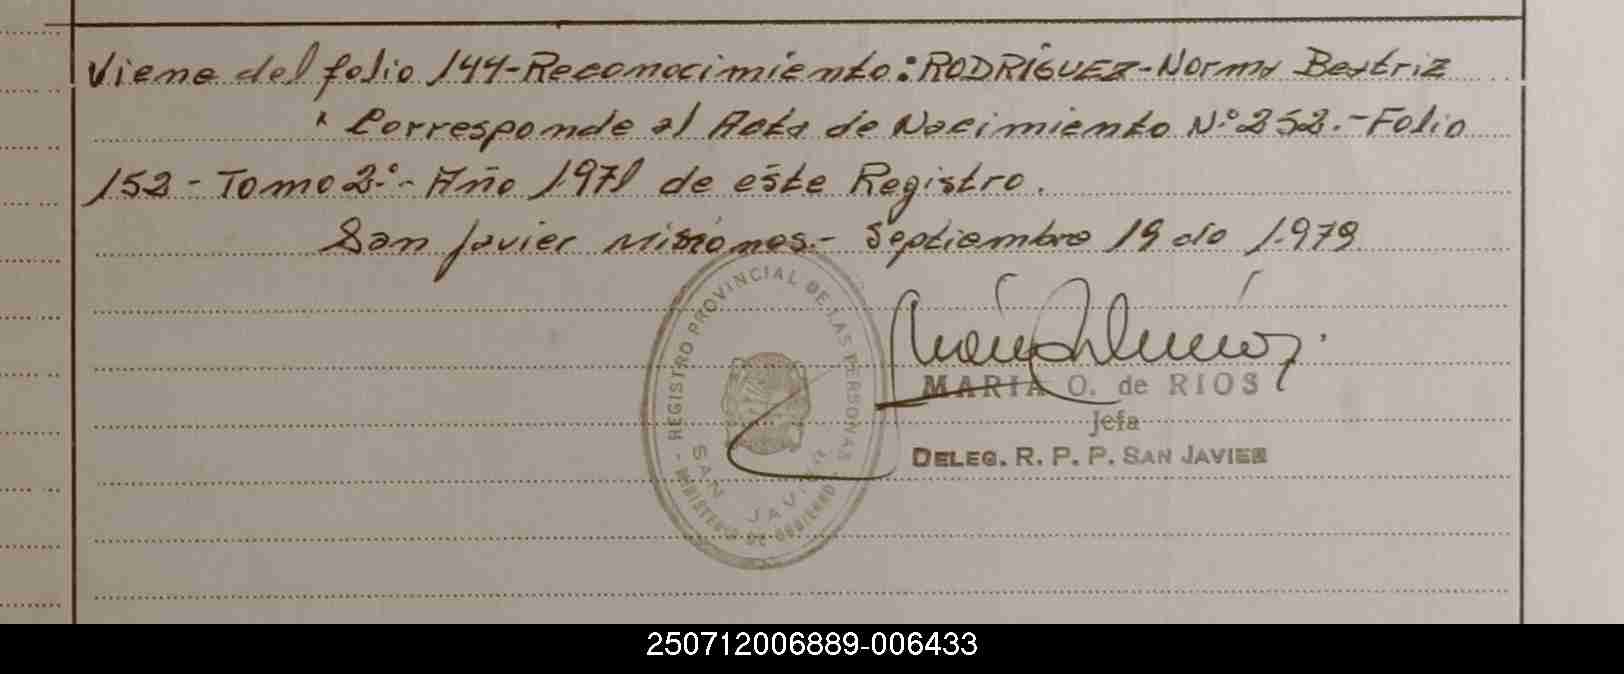 Viene del folio 144-Reconocimiento: RODRÍGUEZ-Norma Beatriz
Corresponde al Acta de Nacimiento Nº 252.-Folio
152- Tomo 2º.- Año 1.971 de este Registro.
San Javier Misiones.- Septiembre 19 de 1.979
REGISTRO PROVINCIAL DE LAS PERSONAS
MINISTERIO DE GOBIERNO
SAN JAVIER
MARIA O. de RIOS
Jefa
DELEG. R. P. P. SAN JAVIER
250712006889-006433